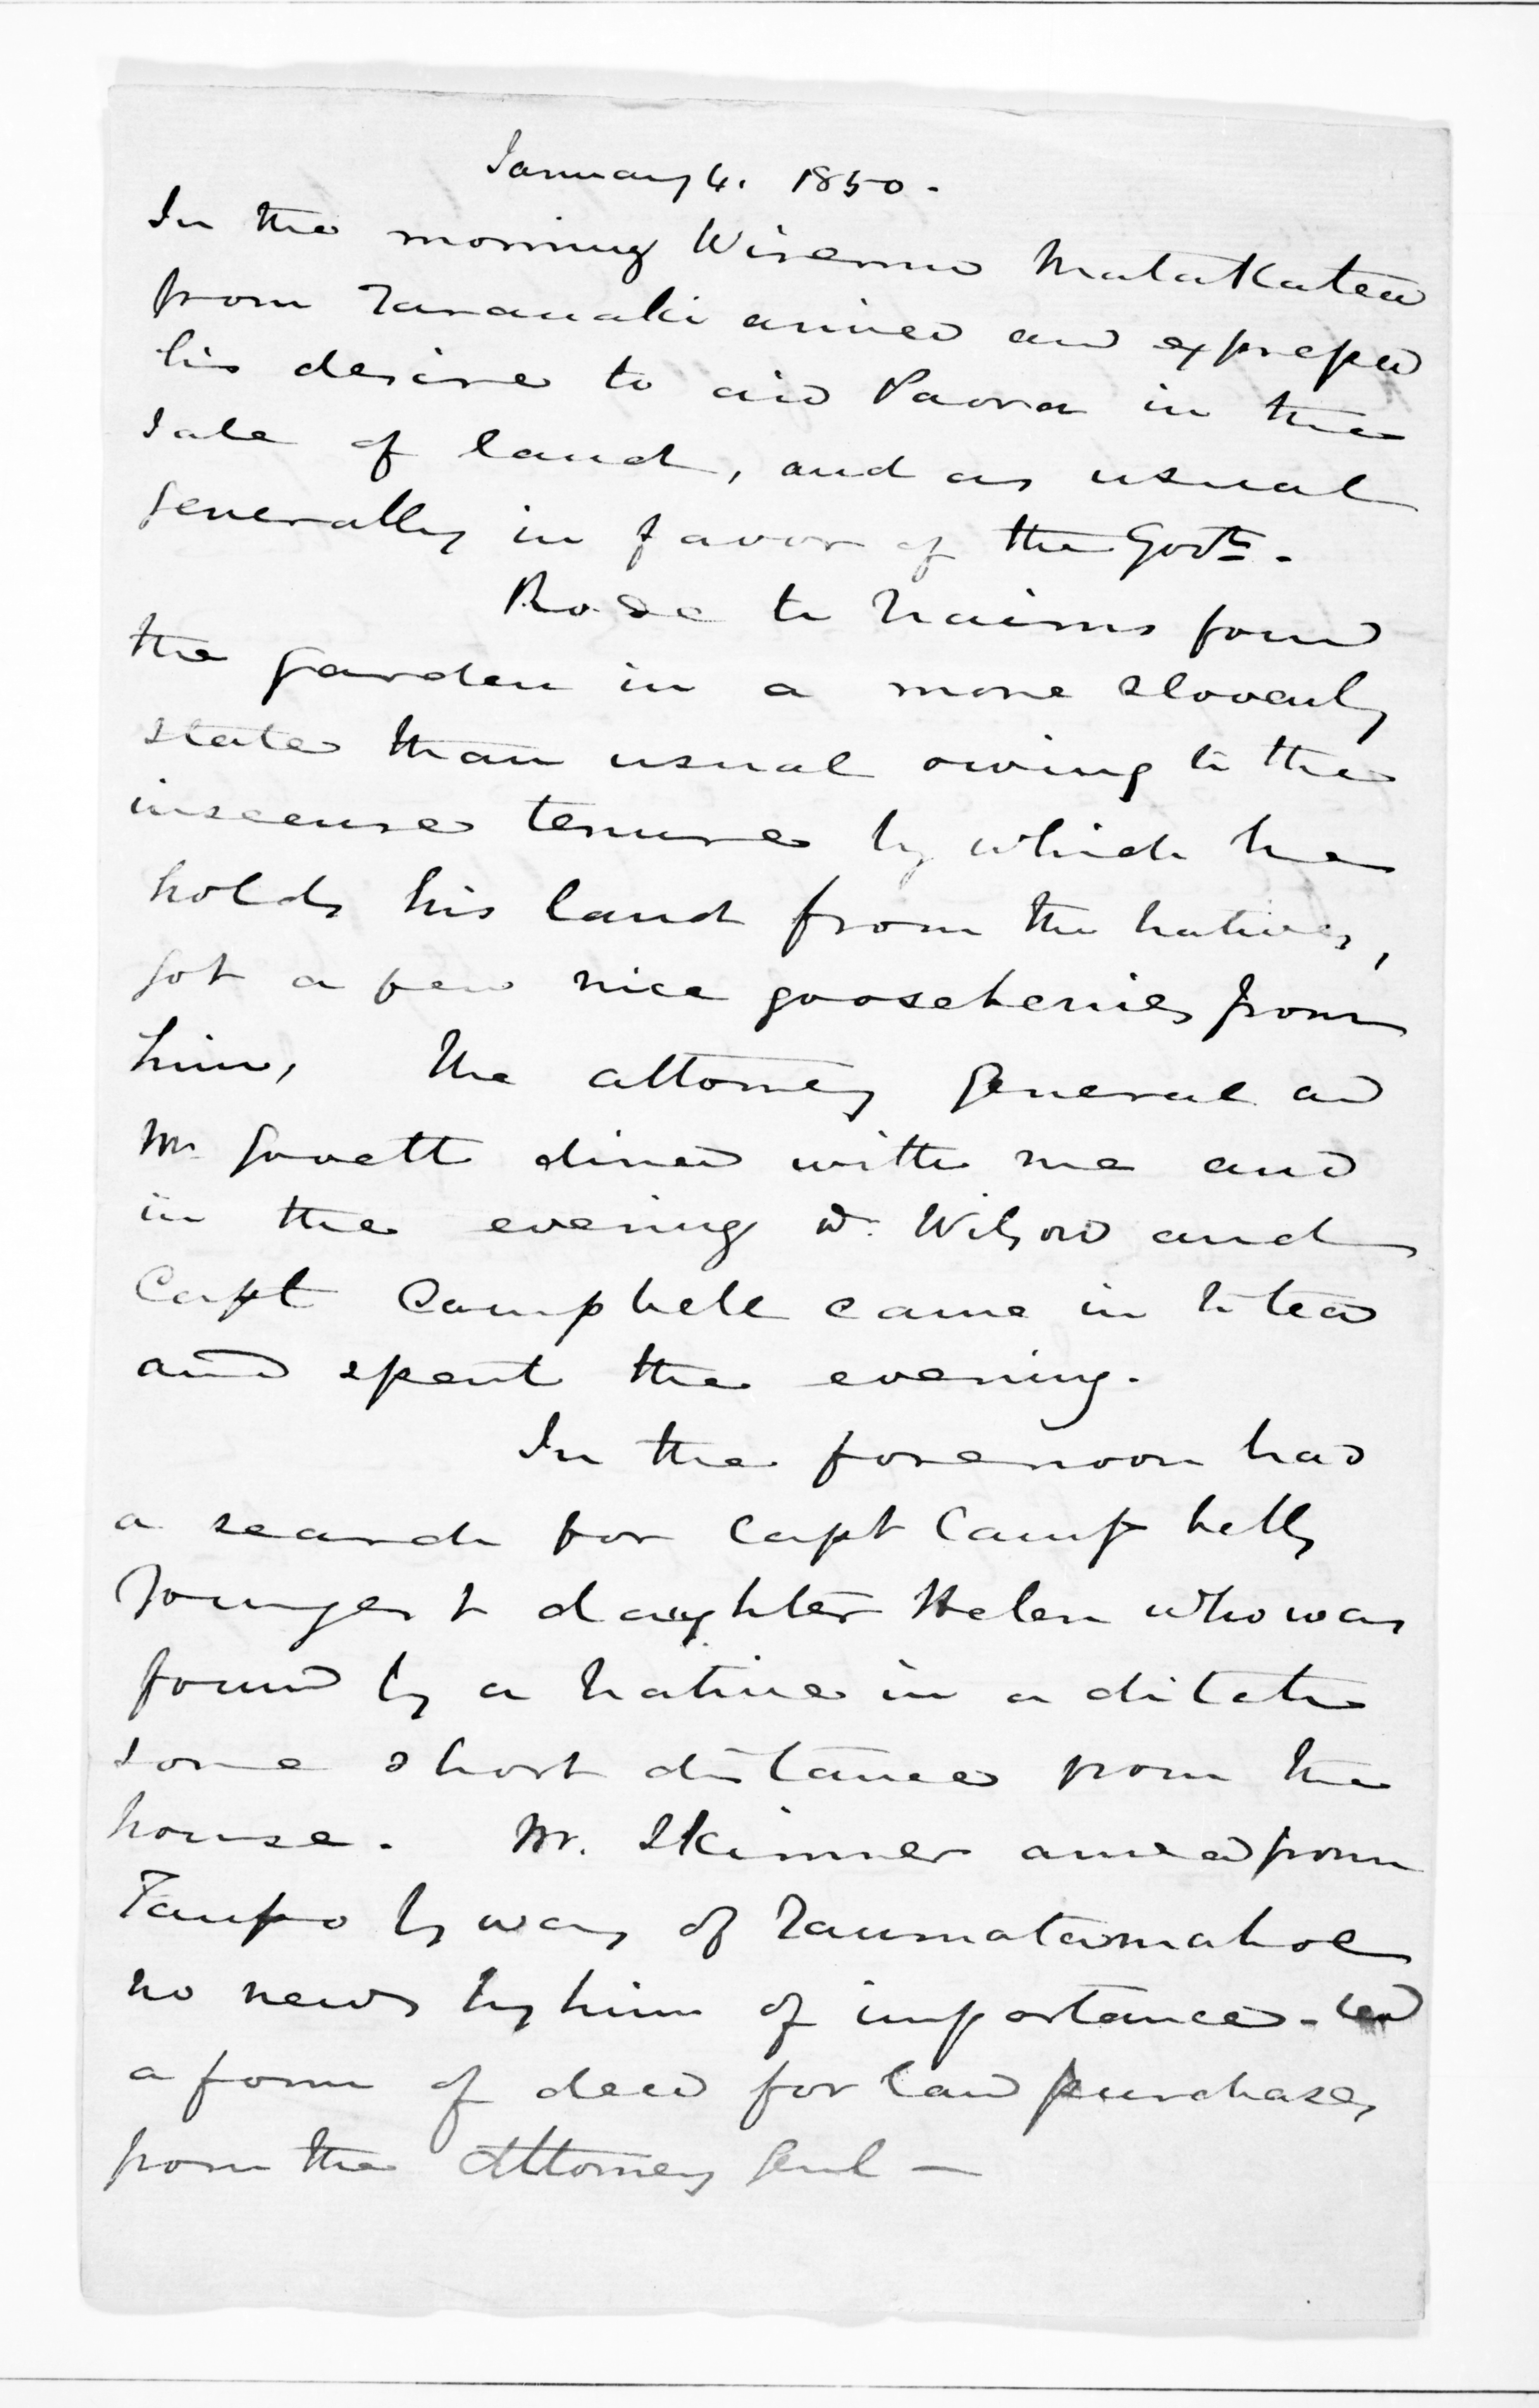 January 4. 1850.
In the morning Wiremu Matakatea
from Taranaki arrived and expressed
his desire to aid Paora in the
sale of land, and as usual
generally in favor of the Govt.
Rode to Nairns found
the garden in a more slovenly
state than usual owing to the
insecure tenure by which he
holds his land from the natives,
got a few nice gooseberries from
him, The attorney general and
Mr Govett dined with me and
in the evening Dr Wilson and
Capt Campbell came in to tea
and spent the evening.
In the forenoon had
a search for Capt Campbells
youngest daughter Helen who was
found by a native in a ditch
some short distance from the
house. Mr. Skinner arrived from
Taupo by way of Taumatamahoe
no news by him of importance.
a form of deed for land purchases
from the Attorney Genl —